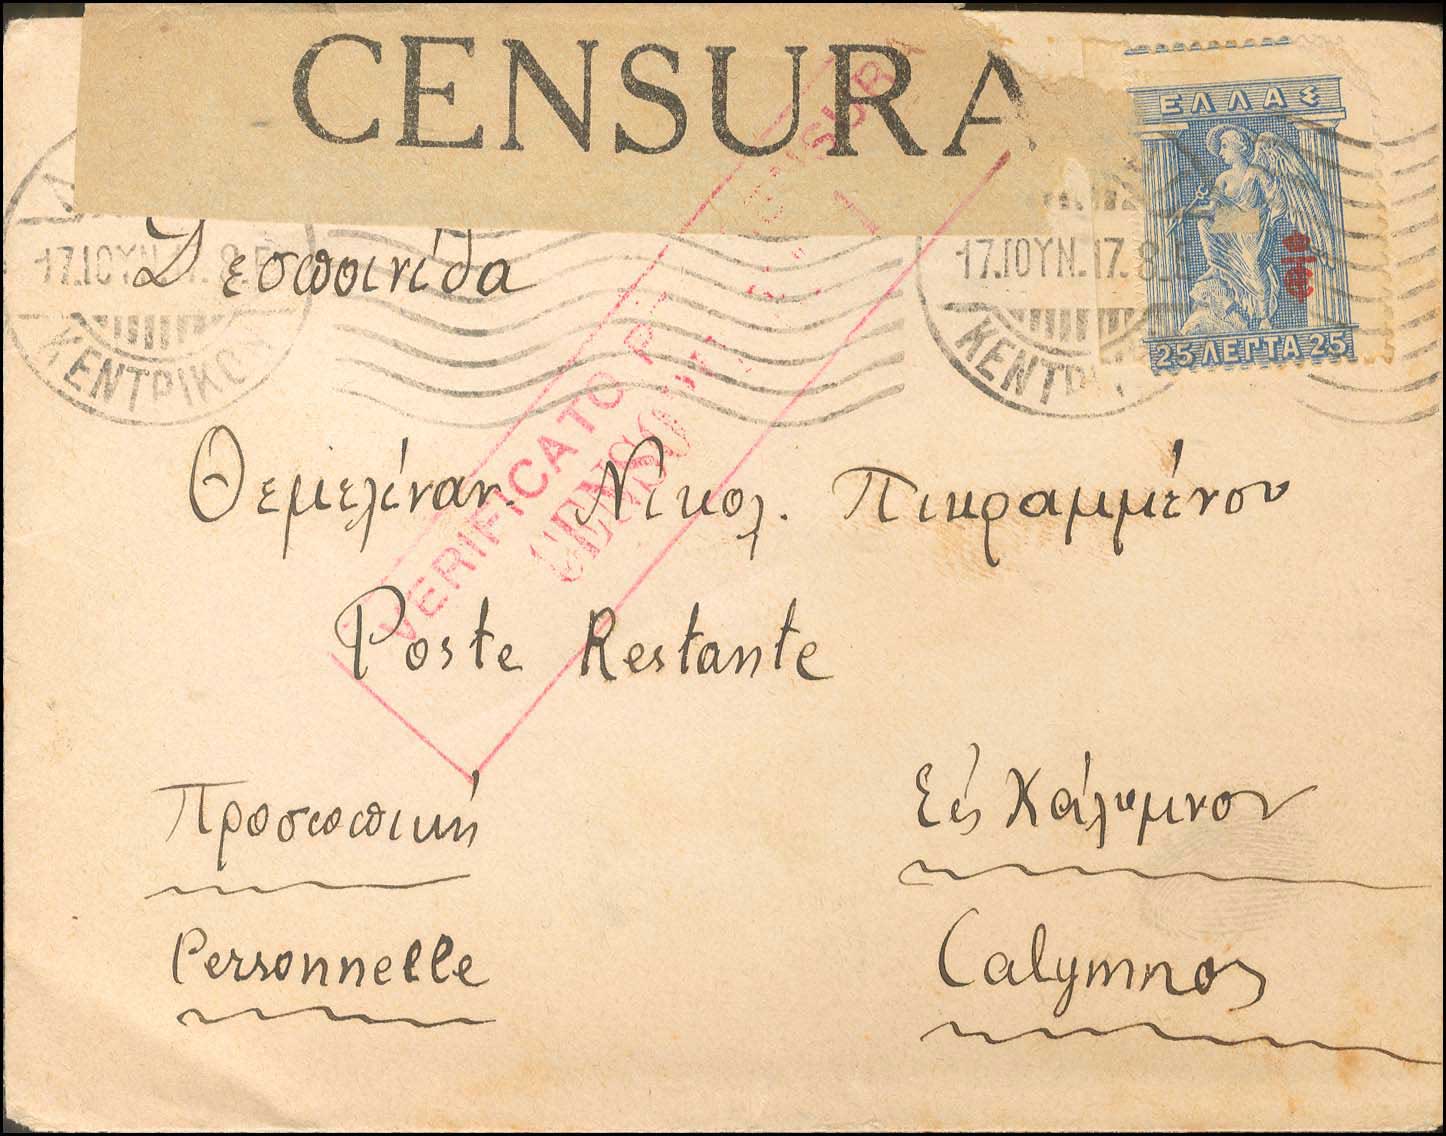 CENSURA
ΕΛΛΑΣ
25 ΛΕΠΤΑ 25
17.ΙΟΥΝ. 17. 8.
ΚΕΝΤΡΙΚΟΝ
17.ΙΟΥΝ. 17. 8.
ΚΕΝΤΡΙ
VERIFICATO P
CENSURA
CENSO
Δεσποινίδα
Θεμελίναν. Νικολ. Πικραμμένου
Poste Restante
Προσωπική
Εἰς Κάλυμνον
Personnelle
Calymnos